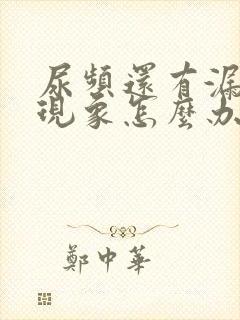 尿頻還有漏
現象怎麼办
鄭中華